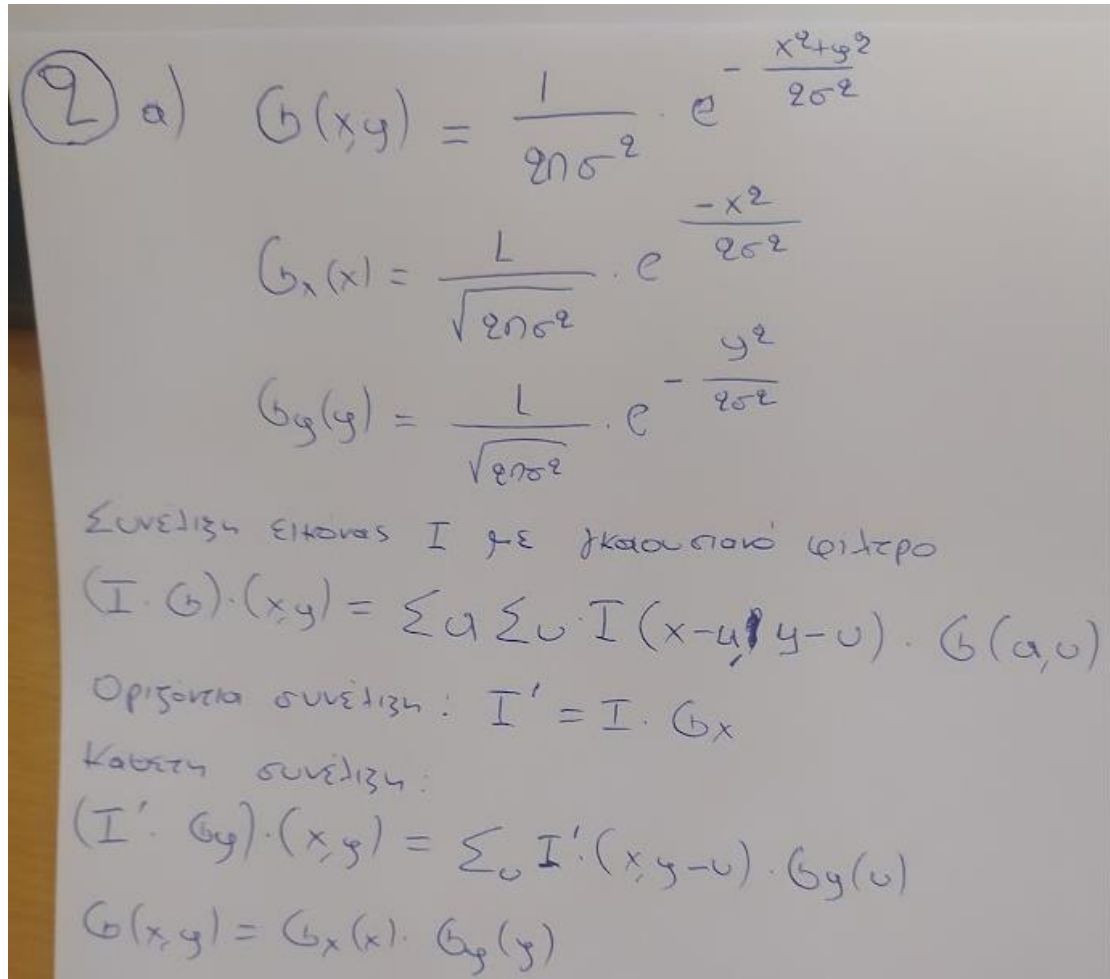 2 α) G(x,y) = 1 / 2πσ² · e^(- (x²+y²) / 2σ²)
Gx(x) = 1 / √(2πσ²) · e^(-x² / 2σ²)
Gy(y) = 1 / √(2πσ²) · e^(- y² / 2σ²)
Συνέλιξη εικόνας I με γκαουσιανό φίλτρο
(I · G) · (x,y) = Σu Συ · I (x-u, y-υ) · G(u,υ)
Οριζόντια συνέλιξη: I' = I · Gx
Κάθετη συνέλιξη:
(I' · Gy) · (x,y) = Συ I' · (x,y-υ) · Gy(υ)
G(x,y) = Gx(x) · Gy(y)